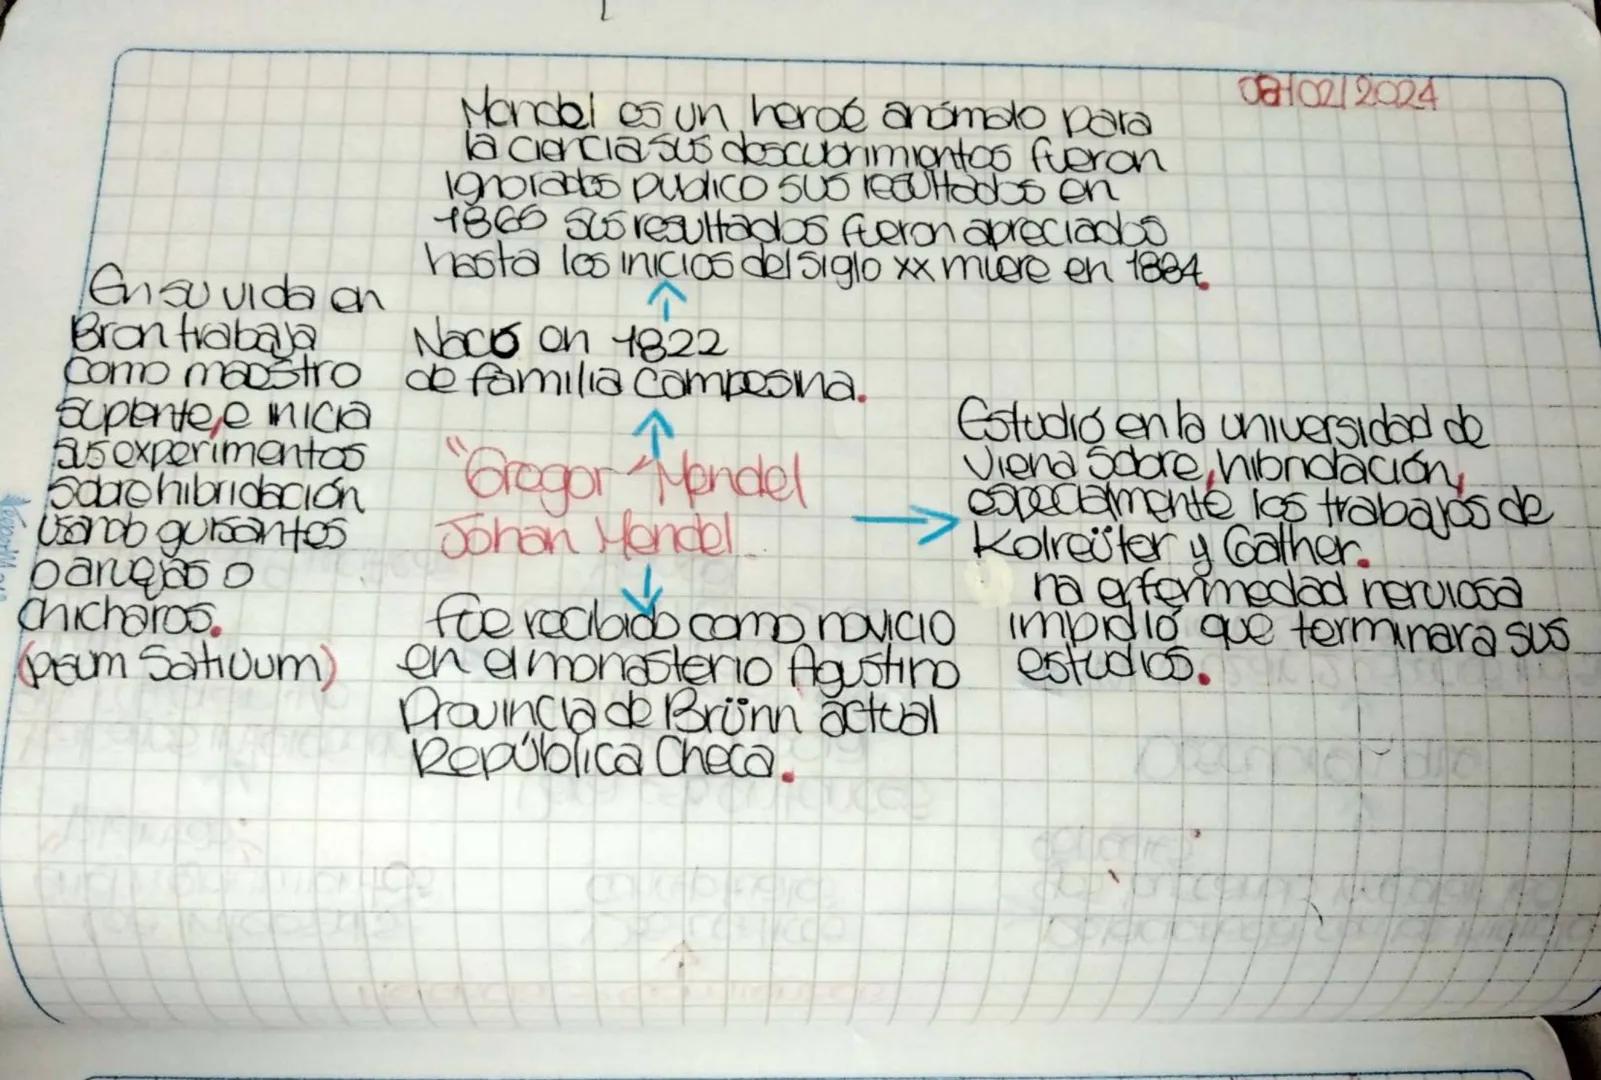 08/02/2024
Mendel es un heroé anómalo para
la ciencia sus descubrimientos fueron
ignorados publico sus resultados en
1866 sus resultados fueron apreciados
hasta los inicios del siglo xx muere en 1884.
Nació en 1822
de familia campesina.
"Gregor" Mendel
Johan Mendel
En su vida en
Bron trabaja
como maestro
suplente, e inicia
sus experimentos
sobre hibridación
usando guisantes
o
chicharos.
(pisum Sativum)
Estudió en la universidad de
Viena sobre, hibridación,
especialmente los trabajos de
Kolreüter y Gather.
na enfermedad nerviosa
impidió que terminara sus
estudios.
fue recibido como novicio
en el monasterio Agustino
Provincia de Brünn actual
República Checa.